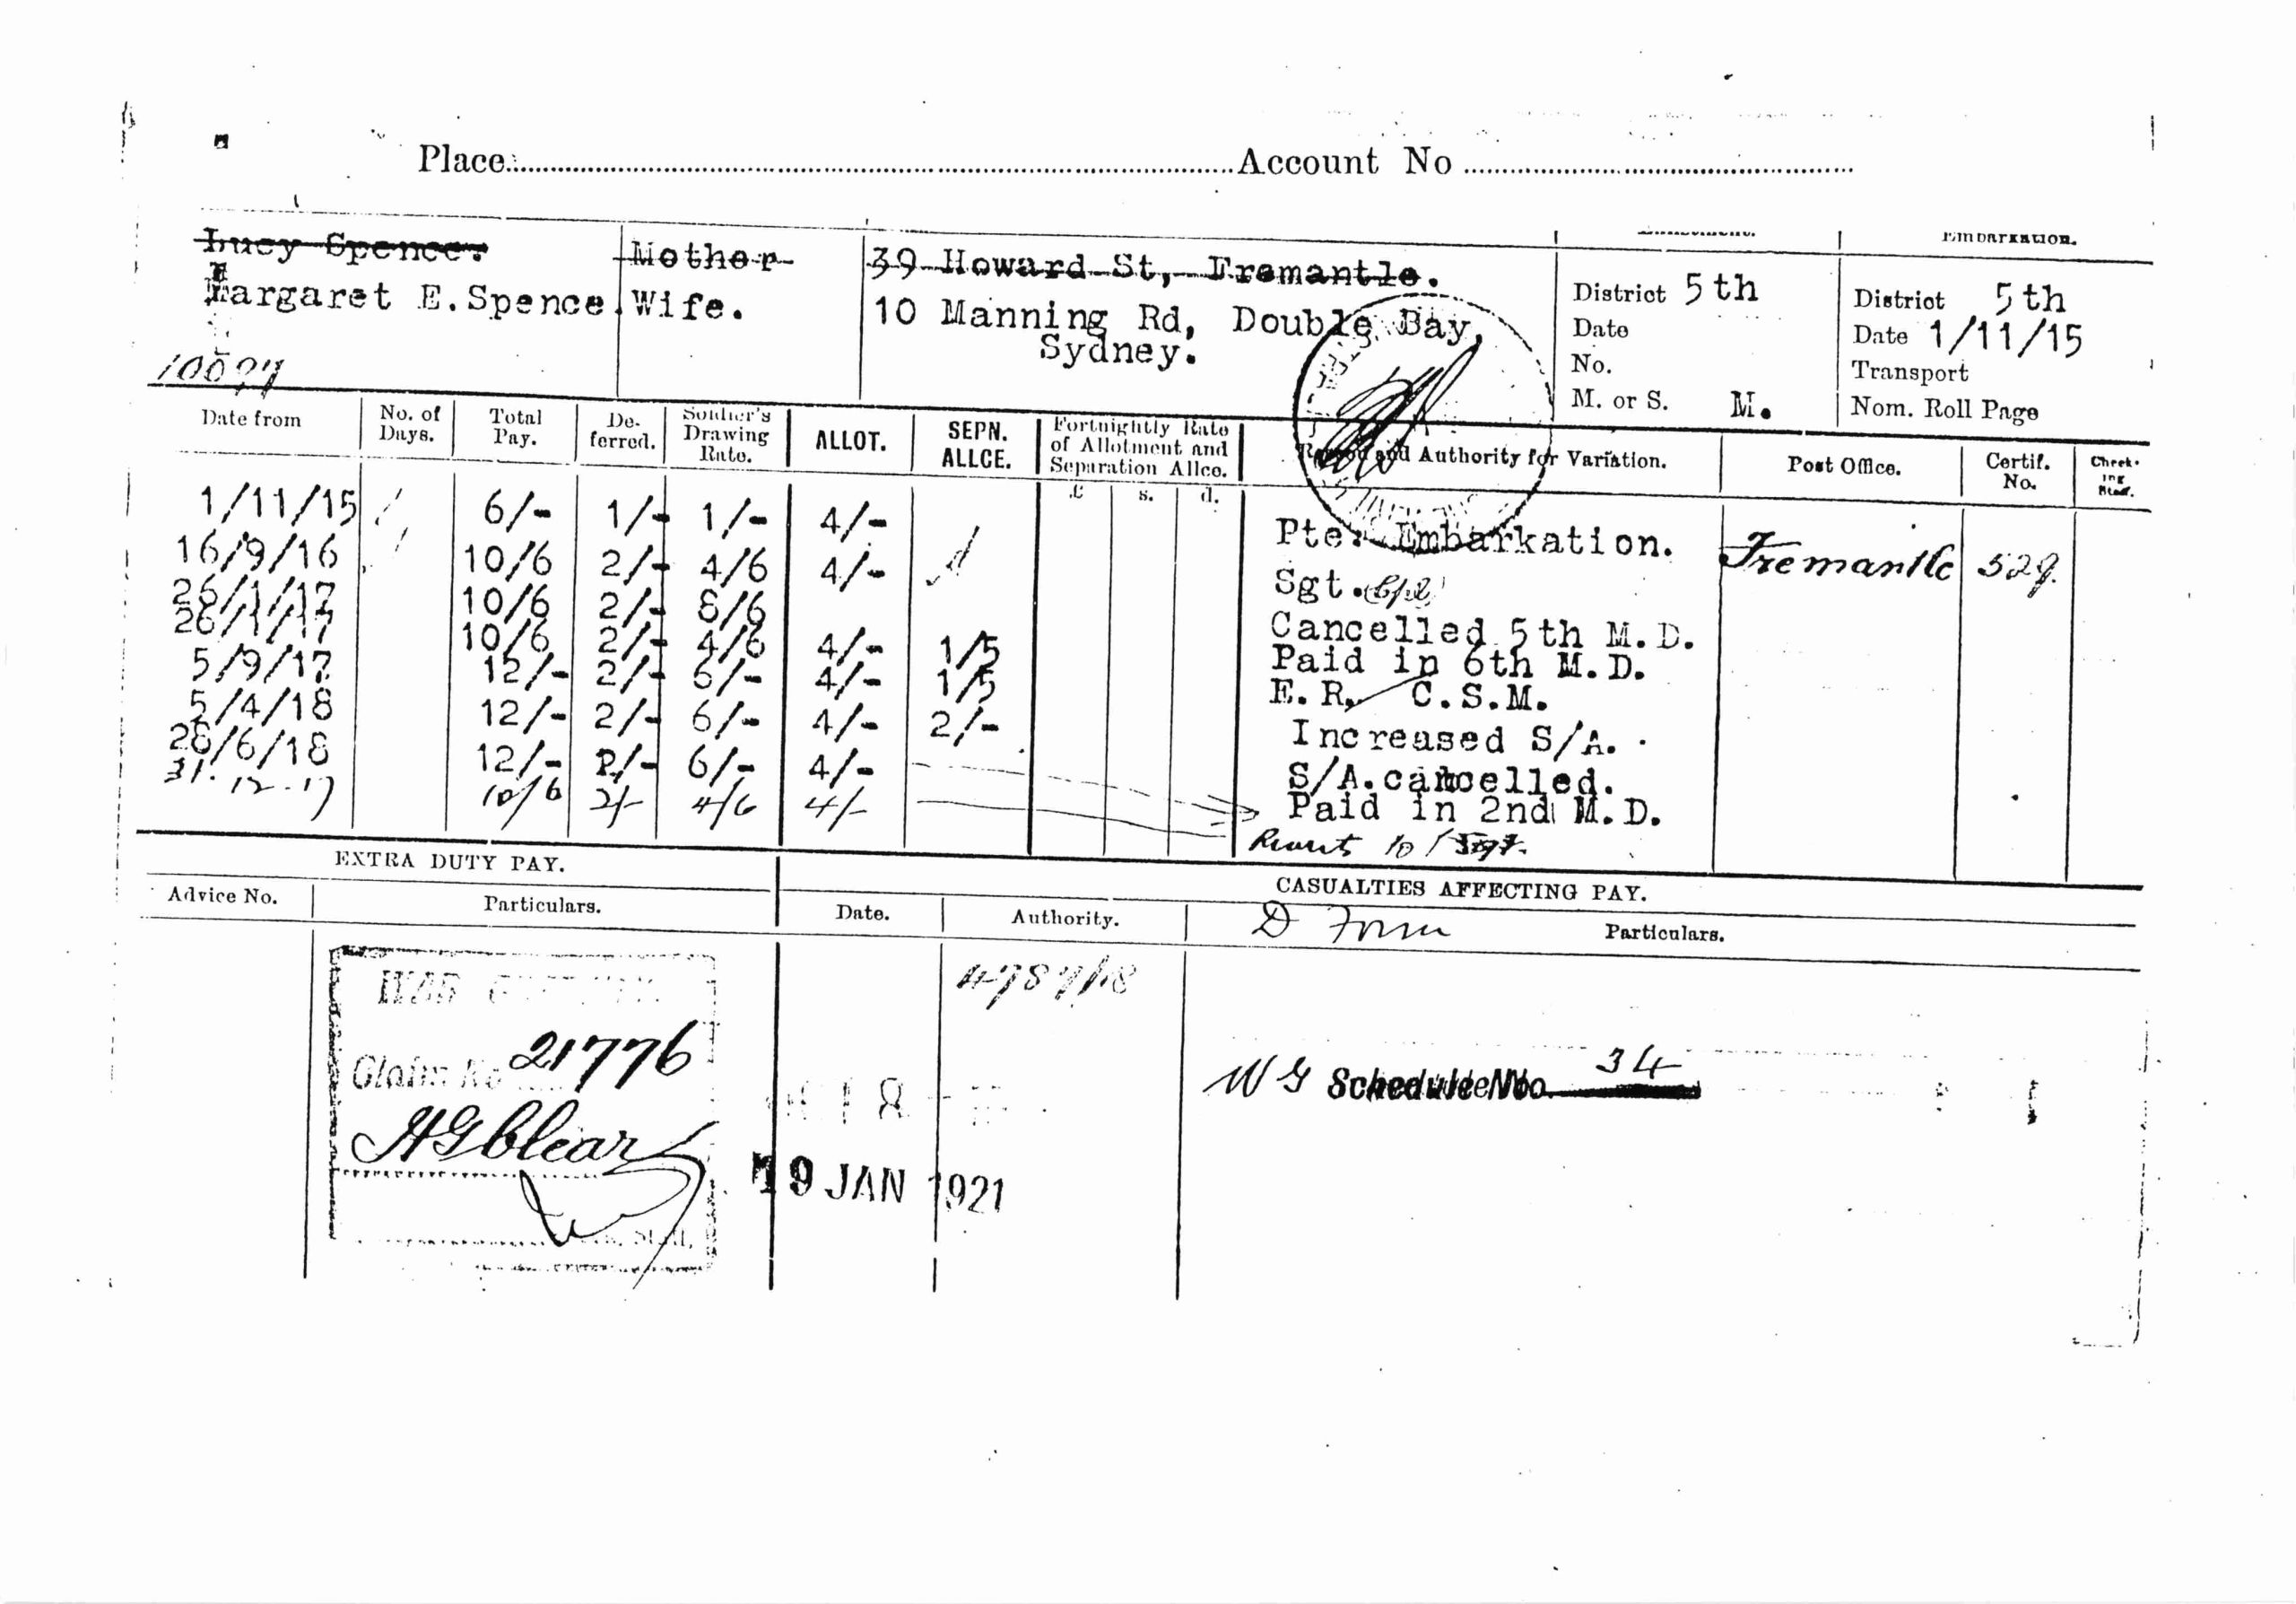 Place. Account No
Lucy Spence. Mother 39 Howard St, Fremantle.
Margaret E.Spence. Wife. 10 Manning Rd, Double Bay,
Sydney.
10097
Embarkation.
District 5th District 5th
Date Date 1/11/15
No. Transport
M. or S. M. Nom. Roll Page
Date from No. of Days. Total Pay. De-ferred. Soldier's Drawing Rate. ALLOT. SEPN. ALLCE. Fortnightly Rate of Allotment and Separation Allce. and Authority for Variation. Post Office. Certif. No. Check-ing
£ s. d.
1/11/15 6/- 1/- 1/- 4/- Pte. Embarkation. Fremantle 529.
16/9/16 10/6 2/- 4/6 4/- Sgt.
26/1/17 10/6 2/- 8/6 Cancelled 5th M.D.
26/1/17 10/6 2/- 4/6 4/- 1/5 Paid in 6th M.D.
5/9/17 12/- 2/- 6/- 4/- 1/5 E.R. C.S.M.
5/4/18 12/- 2/- 6/- 4/- 2/- Increased S/A.
28/6/18 12/- 2/- 6/- 4/- S/A.cancelled.
Paid in 2nd M.D.
31.12.17 10/6 2/- 4/6 4/- to Sgt.
EXTRA DUTY PAY. CASUALTIES AFFECTING PAY.
Advice No. Particulars. Date. Authority. D Form Particulars.
WAR
4787/18
Claim No 21776
W G Schedule No. 34
HGblear
19 JAN 1921